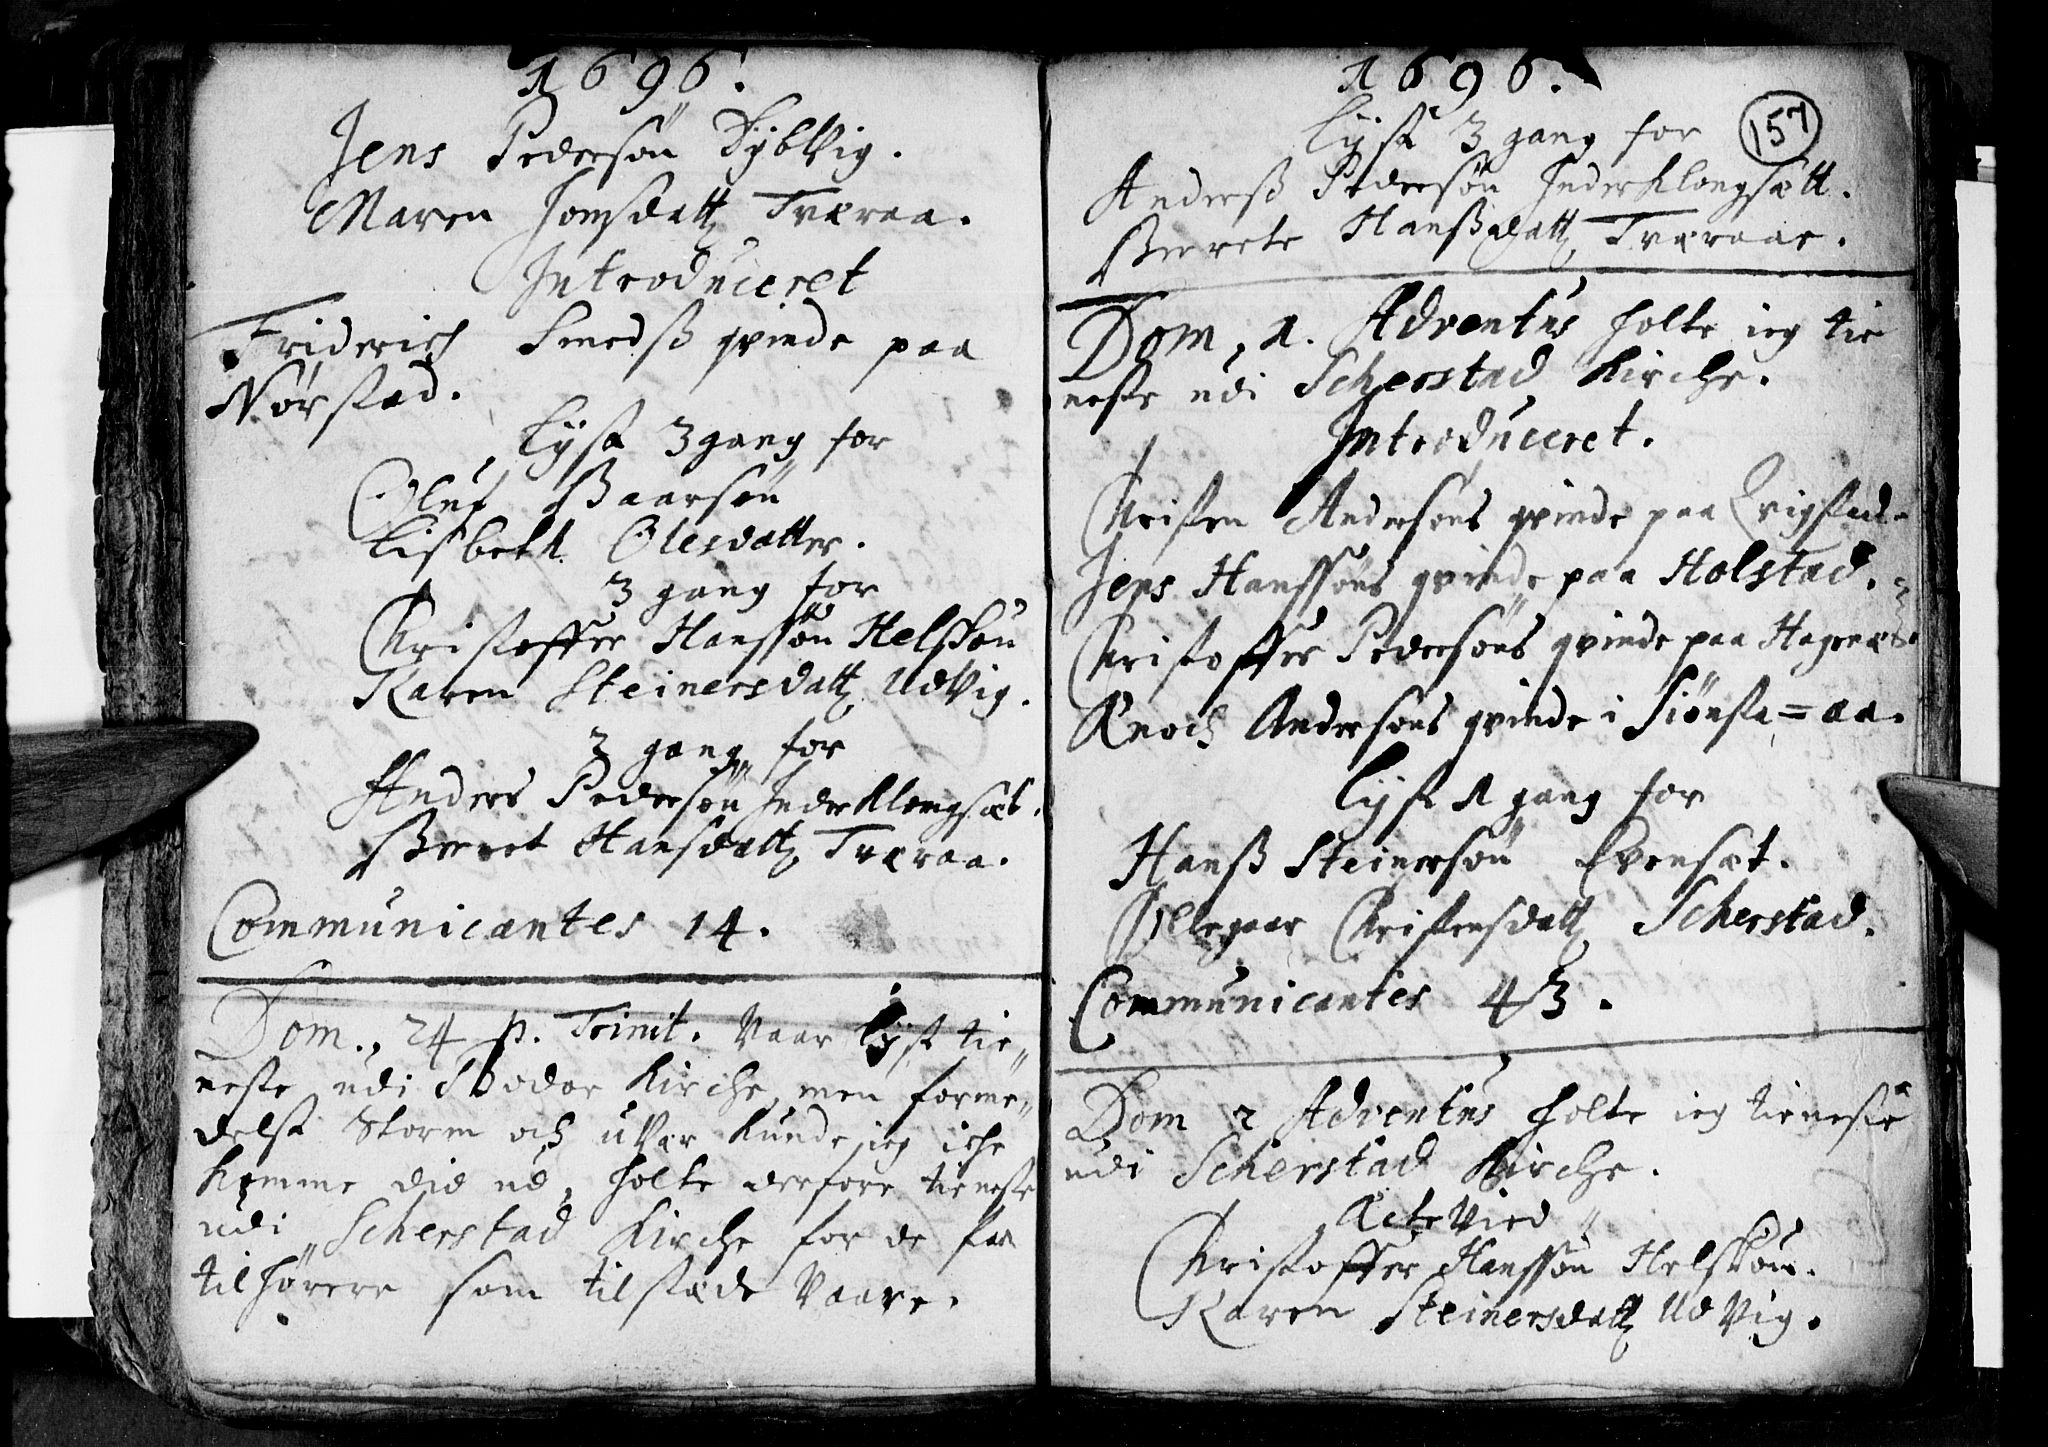 1696.
Jens Pedersøn DybVig.
Maren Jonsdatt Tværaa.
Introduceret
Friderich Smedß qvinde paa
Nørstad.
Lyst 3 gang for
Oluf Baarsøn
Lisbeth Olesdatter.
3 gang for
Christoffer Hanssøn Helskou
Karen Steinersdatt UdVig.
3 gang for
Anders Pedersøn InderKlongsæt.
Berret Hansdatt Tværaa.
Communicantes 14.
Dom. 24 p. Trinit. Vaar lyst tie-
neste udi Skodoe Kirche, men forme-
delst Storm och uVær kunde jeg iche
komme did ud, holte derfore tieneste
udi Scherstad Kirche for de faa
tilhørere som tilstæde Vaare.
1696.
157
Lyst 3 gang for
Anderß Pedersøn InderKlongsætt.
Berrete Hanßdatt Tværaae.
Dom, 1. Adventus holte ieg tie
neste udi Scherstad Kirche.
Introduceret.
Christen Andersøns qvinde paa Evigstad.
Jens Hanssøns qvinde paa Holstad.
Christoffer Pedersøns qvinde paa Hagenæs.
Enoch Andersøns qvinde i Siønsta=aa.
Lyst 1 gang for
Hanß Steinersøn Evensæt.
Illegaar Christensdatt Scherstad.
Communicantes 43.
Dom 2 Adventus holte ieg tieneste
udi Scherstad Kirche.
ÆcteVied
Christoffer Hanssøn Helskou.
Karen Steinersdatt UdVig.